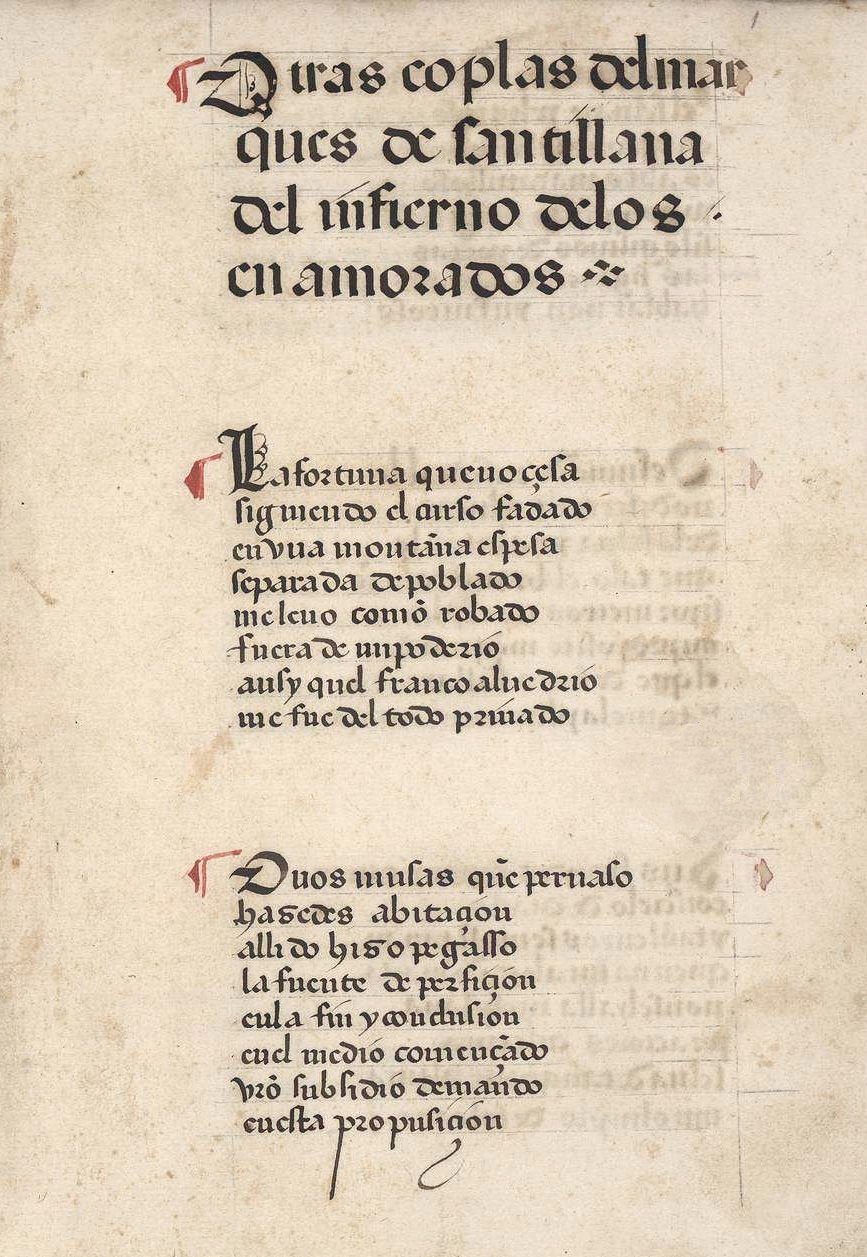 Otras coplas del mar
ques de santillana
del infierno delos
enamorados
La fortuna que no çesa
siguiendo el curso fadado
en vna montãna espesa
separada de poblado
me leuo comõ robado
fuera de mi poderio
ansy quel franco aluedrio
me fue del todo priuado
O uos musas quẽ pernaso
hasedes abitaçion
alli do hiso pegasso
la fuente de perfiçion
en la fin y conclusion
en el medio començado
vrõ subsidio demando
en esta proposiçion